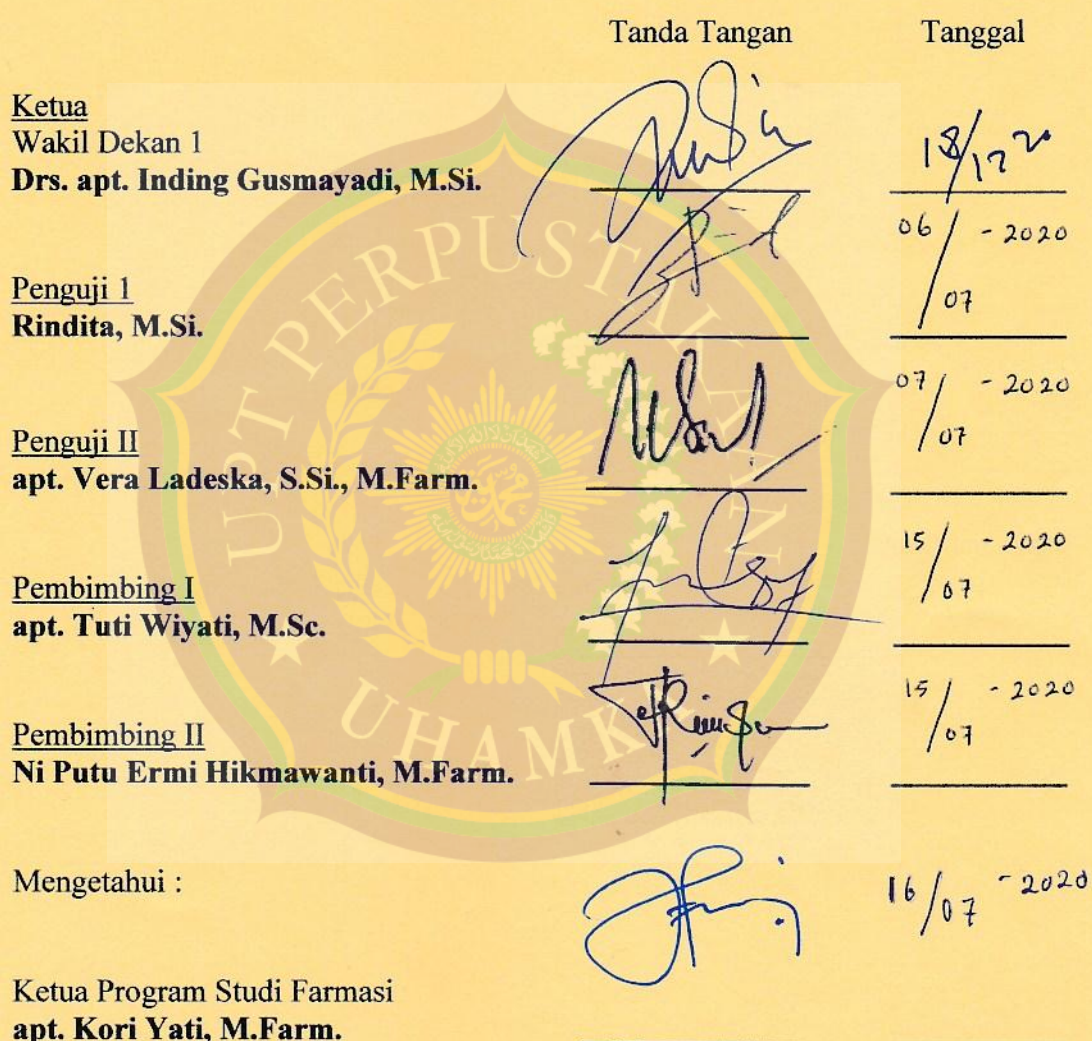 Tanda Tangan Tanggal
Ketua
Wakil Dekan 1
Drs. apt. Inding Gusmayadi, M.Si.
18/12 20
Penguji 1
Rindita, M.Si.
06/07 - 2020
Penguji II
apt. Vera Ladeska, S.Si., M.Farm.
07/07 - 2020
Pembimbing I
apt. Tuti Wiyati, M.Sc.
15/07 - 2020
Pembimbing II
Ni Putu Ermi Hikmawanti, M.Farm.
15/07 - 2020
Mengetahui :
16/07 - 2020
Ketua Program Studi Farmasi
apt. Kori Yati, M.Farm.
UPT PERPUSTAKAAN
UHAMKA